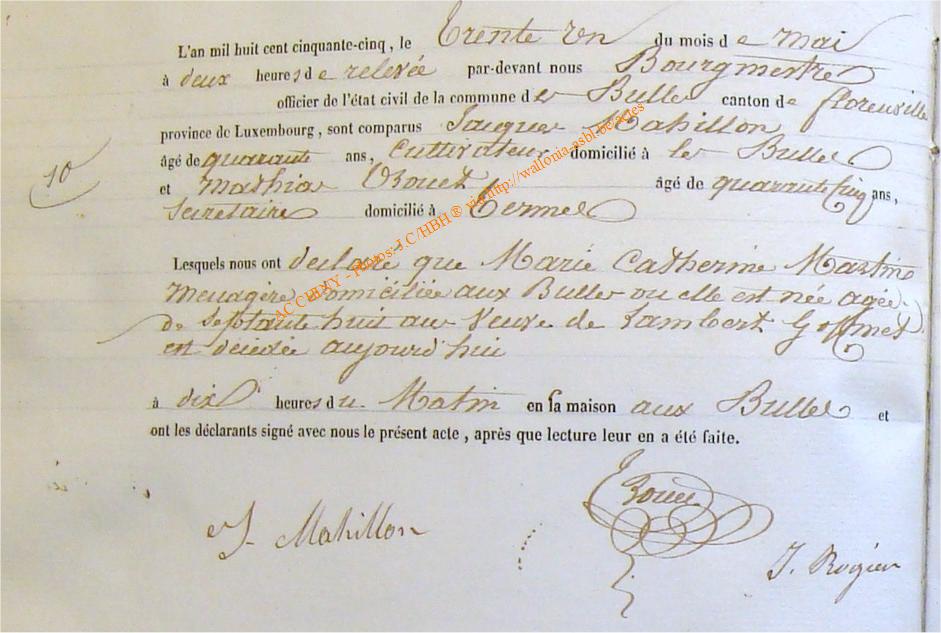 L'an mil huit cent cinquante-cinq, le Trente un du mois de mai
à deux heures de relevée par-devant nous Bourgmestre
officier de l'état civil de la commune des Bulles canton de florenville
province de Luxembourg, sont comparus Jacques Mahillon
10
âgé de quarante ans, Cultivateur domicilié à les Bulles
et Mathias âgé de quarante cinq ans,
Secretaire domicilié à Termes
Lesquels nous ont declaré que Marie Catherine Martin
menagère domiciliée aux Bulles ou elle est née agée
de septante huit an Veuve de Lambert
est décédée aujourd'hui
à dix heures du Matin en sa maison aux Bulles et
ont les déclarants signé avec nous le présent acte, après que lecture leur en a été faite.
J. Mahillon
J. Rogier
ACCHINY - Photos: J.C/HBH® via http://wallonia-asbl.be/actes